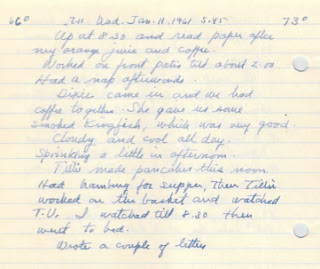 66° 711 Wed. Jan. 11. 1961 5.45 73°
Up at 8.30 and read paper after
my orange juice and coffee.
Worked on front patio till about 2.00.
Had a nap afterwards.
Dixie came in and we had
coffee together. She gave us some
smoked Kingfish, which was very good.
Cloudy and cool all day.
Sprinkling a little in afternoon.
Tillie made pancakes this noon.
Had hamburg for supper, then Tillie
worked on the basket and watched
T.V. I watched till 8.30 then
went to bed.
Wrote a couple of letters